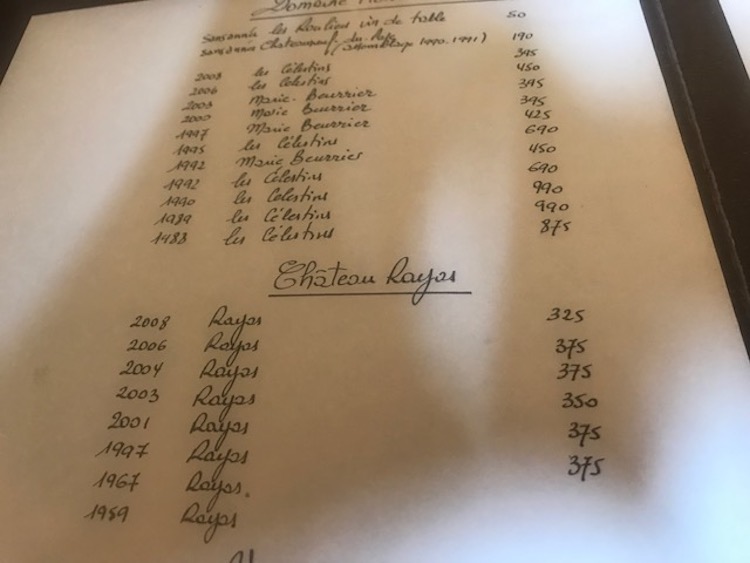 Domaine
Sans année les Rouliers vin de table 50
sans année Châteauneuf-du-Pape (assemblage 1990-1991) 190
les Célestins 395
2006 les Célestins 450
2003 Marie-Beurrier 395
2000 Marie Beurrier 395
1997 Marie Beurrier 425
1995 les Célestins 690
1992 Marie Beurrier 450
1992 les Célestins 690
1990 les Célestins 990
1989 les Célestins 990
1988 les Célestins 875
Château Rayas
2008 Rayas 325
2006 Rayas 375
2004 Rayas 375
2003 Rayas 350
2001 Rayas 375
1997 Rayas 375
1967 Rayas.
1959 Rayas